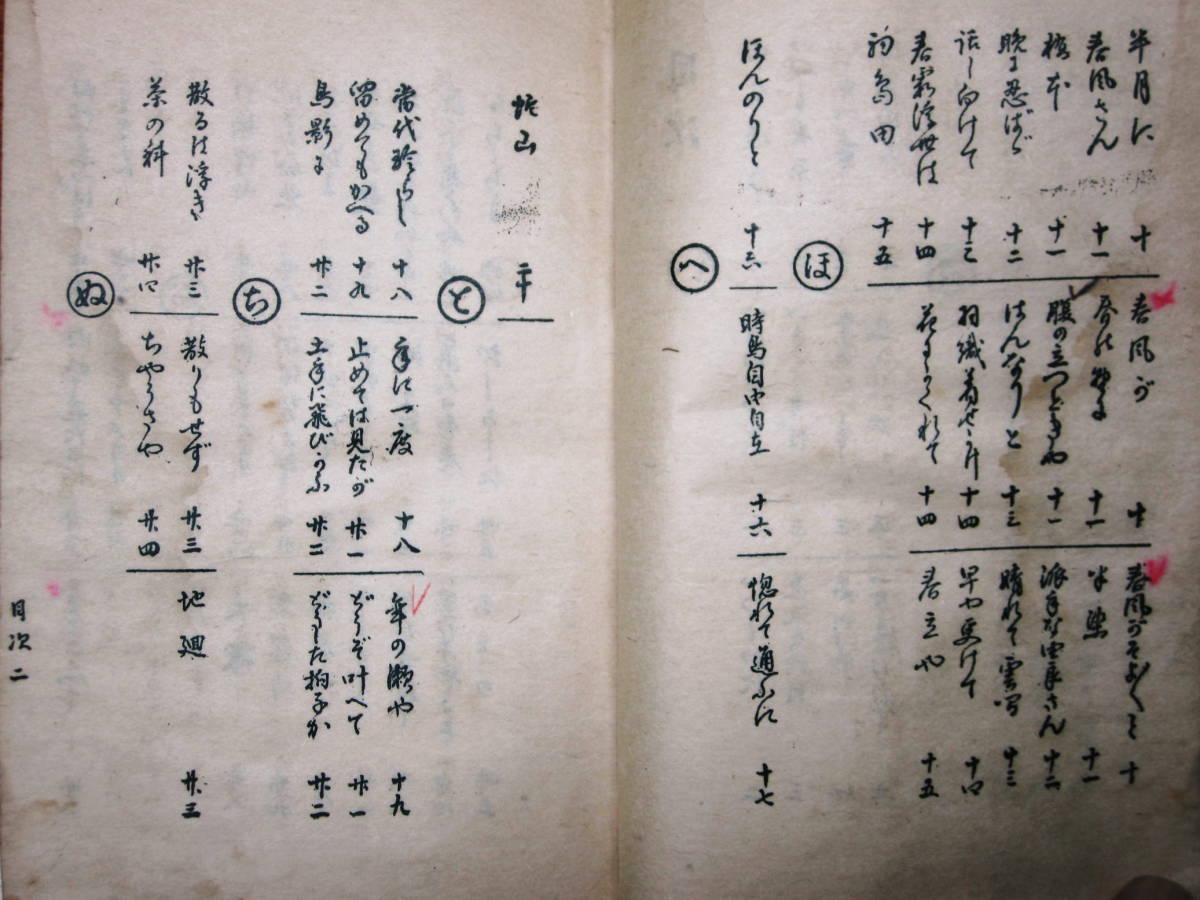 半月に 十 春風が 十 春風がそよ〳〵と 十
春風さん 十一 十一 十一
十一 腹の立つときや 十一 派手な由良さん 十二
晩に忍ばゞ 十二 はんなりと 十三 晴れて雲間 十三
話し向けて 十三 羽織着せかけ 十四 早や更けて 十四
春霞浮世は 十四 花にうかれて 十四 春立や 十五
初島田 十五
ほ
ほんのりと 十六 時鳥自由自在 十六 惚れて通ふに 十七
へ
二十
と
十八 一度 十八 年の瀬や 十九
留めてもかへる 十九 止めては見たが 廿一 どうぞ叶へて 廿一
鳥影に 廿二 土手に飛びかふ 廿二 どうした拍子か 廿二
ち
散るは浮き 廿三 散りもせず 廿三 地廻 廿三
茶の科 廿四 ちやうさや 廿四
ぬ
目次 二